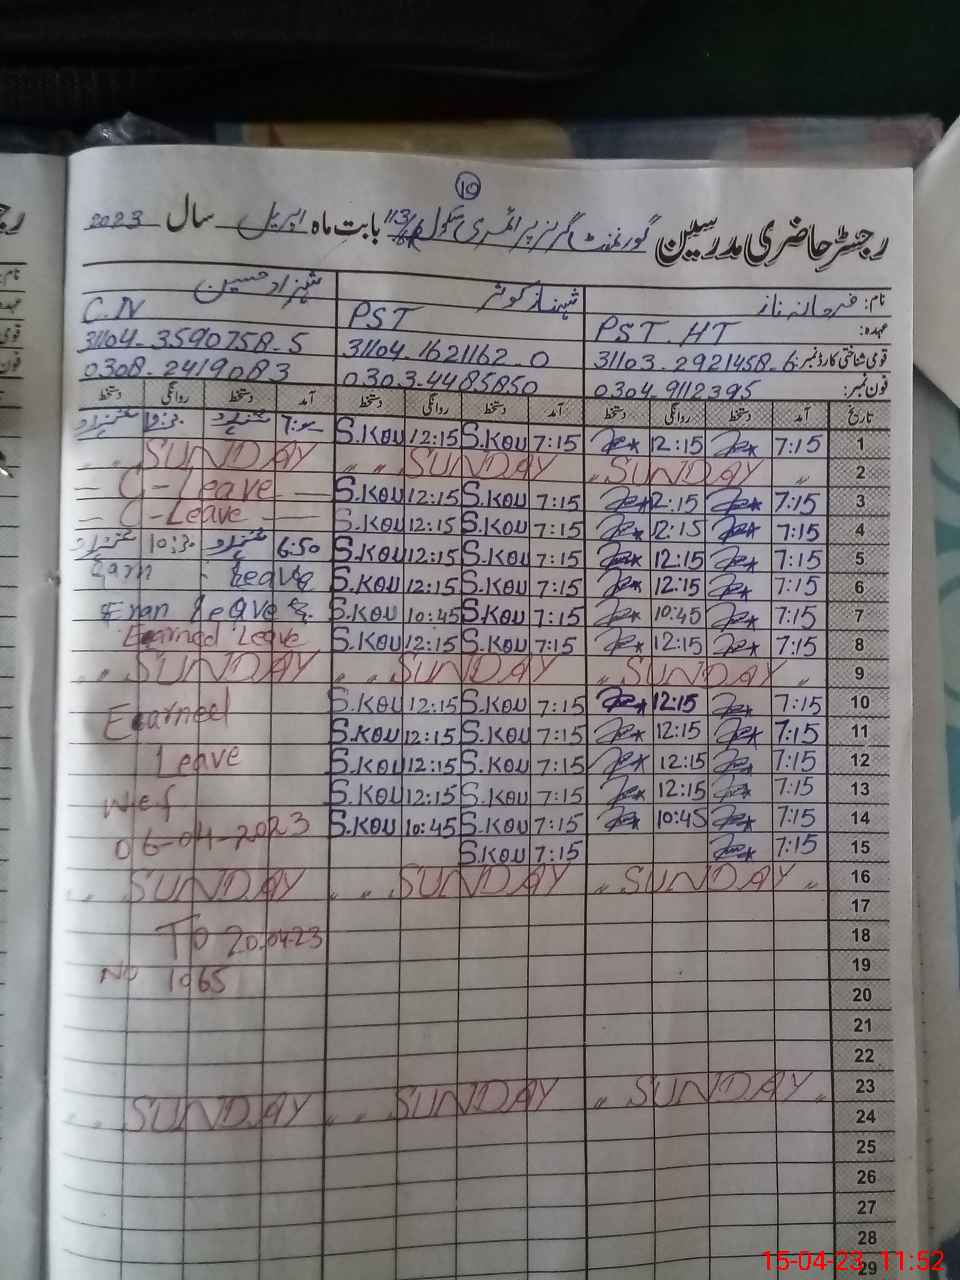 10
رجسٹر حاضری مدرسین گورنمنٹ گرلز پرائمری سکول 113/6R بابت ماہ اپریل سال 2023
نام: فرحانہ ناز شہناز کوثر شہزاد حسین
عہدہ: PST.HT PST C.IV
قومی شناختی کارڈ نمبر: 31103-2921458-6 31104-1621162-0 31104-3590758-5
فون نمبر: 0304-9112395 0303-4485850 0308-2419083
تاریخ آمد دستخط روانگی دستخط آمد دستخط روانگی دستخط آمد دستخط روانگی دستخط
1 7:15 12:15 7:15 S.KOU 12:15 S.KOU
2 SUNDAY SUNDAY SUNDAY
3 7:15 12:15 7:15 S.KOU 12:15 S.KOU C-Leave
4 7:15 12:15 7:15 S.KOU 12:15 S.KOU C-Leave
5 7:15 12:15 7:15 S.KOU 12:15 S.KOU 6:50 شہزاد شہزاد
6 7:15 12:15 7:15 S.KOU 12:15 S.KOU Earn Leave
7 7:15 10:45 7:15 S.KOU 10:45 S.KOU Eran Leave
8 7:15 12:15 7:15 S.KOU 12:15 S.KOU Earned Leave
9 SUNDAY SUNDAY SUNDAY
10 7:15 12:15 7:15 S.KOU 12:15 S.KOU Earned
11 7:15 12:15 7:15 S.KOU 12:15 S.KOU
12 7:15 12:15 7:15 S.KOU 12:15 S.KOU Leave
13 7:15 12:15 7:15 S.KOU 12:15 S.KOU Wef
14 7:15 10:45 7:15 S.KOU 10:45 S.KOU 06-04-2023
15 7:15 7:15 S.KOU
16 SUNDAY SUNDAY SUNDAY
17
18 To 20.04-23
19 No 1065
20
21
22
23 SUNDAY SUNDAY SUNDAY
24
25
26
27
28
29
15-04-23, 11:52